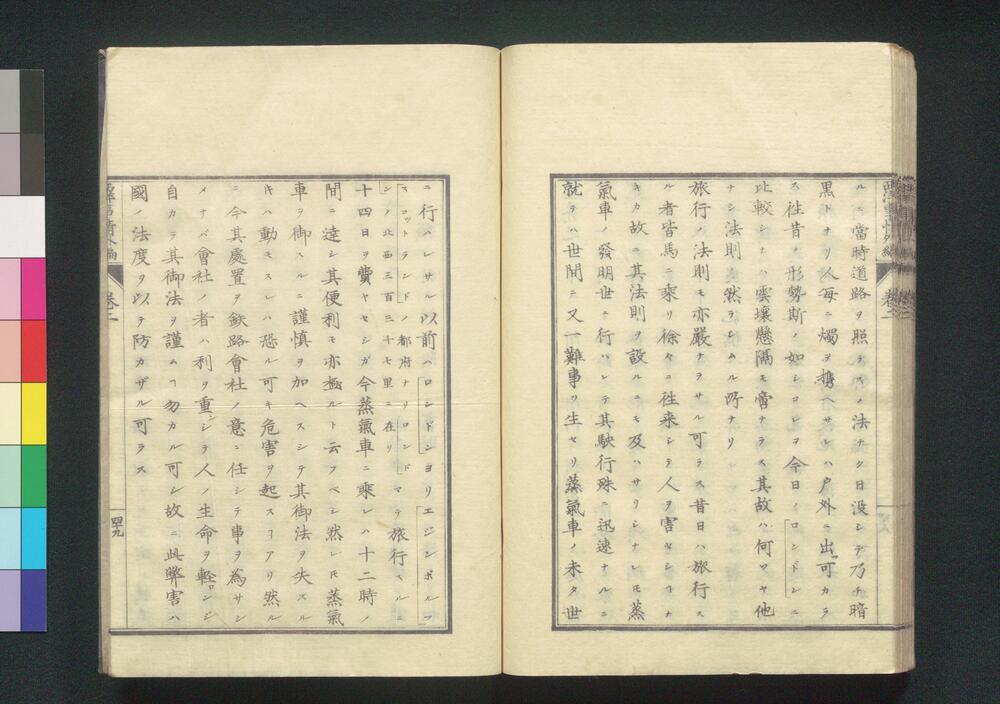 ルニ當時道路ヲ照ラスノ法ナク日没シテ乃チ暗
黒トナリ人每ニ燭ヲ携ヘサレハ户外ニ出可カラ
ス往昔ノ形勢斯ノ如シコレヲ今日ノロンドンニ
比較シナハ雲壤懸隔モ啻ナラス其故ハ何ソヤ他
ナシ法則ノ然ラシムル所ナリ
旅行ノ法則モ亦嚴ナラサル可ラス昔日ハ旅行ス
ル者皆馬ニ乘リ徐々ニ往来シテ人ヲ害セシヿナ
キカ故ニ其法則ヲ設ルニモ及ハサリシナレ𪜈蒸
氣車ノ發明世ニ行ハレテ其駛行殊ニ迅速ナルニ
就テハ世間ニ又一難事ヲ生セリ蒸氣車ノ未タ世
ニ行ハレサル以前ハロンドンヨリエジンボルフ
スコットランドノ都府ナリロンドン
ノ北西三百三十七里ニ在リ
マテ旅行スルニ
十四日ヲ費ヤセシガ今蒸氣車ニ乘レハ十二時ノ
間ニ達シ其便利モ亦極ルト云フベシ然レ𪜈蒸氣
車ヲ御スルニ謹慎ヲ加ヘスシテ其御法ヲ失スル
キハ動モスレハ恐ル可キ危害ヲ起スヿアリ然ル
ニ今其處置ヲ鉄路會社ノ意ニ任シテ事ヲ為サシ
メナバ會社ノ者ハ利ヲ重ンシテ人ノ生命ヲ輕ロンジ
自カラ其御法ヲ謹ムヿ勿カル可シ故ニ此弊害ハ
國ノ法度ヲ以テ防カザル可ラス
卷二
四十九